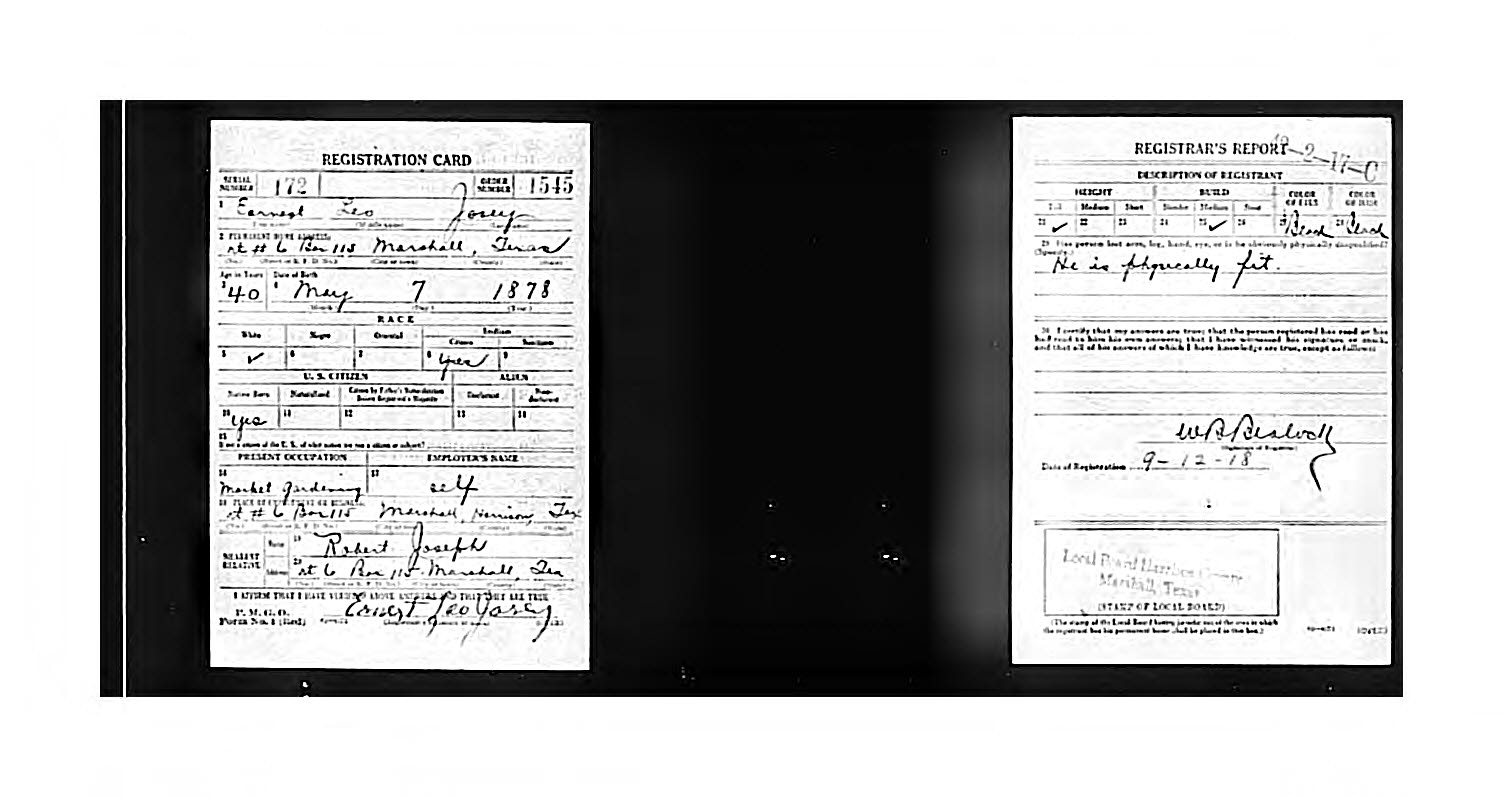 REGISTRATION CARD
SERIAL NUMBER 172 ORDER NUMBER 1545
1 Earnest Leo Josey
(First name) (Middle name) (Last name)
2 PERMANENT HOME ADDRESS:
rt # 6 Box 115 Marshall, Texas
(No.) (Street or R. F. D. No.) (City or town) (County) (State)
Age in Years Date of Birth
3 40 4 May 7 1878
(Month) (Day) (Year)
RACE
White Negro Oriental Indian
Citizen Noncitizen
5 ✓ 6 7 8 yes 9
U. S. CITIZEN ALIEN
Native Born Naturalized Citizen by Father's Naturalization Before Registrant's Majority Declarant Non-declarant
10 yes 11 12 13 14
15
If not a citizen of the U. S., of what nation are you a citizen or subject?
PRESENT OCCUPATION EMPLOYER'S NAME
16 Market gardening 17 self
18 PLACE OF EMPLOYMENT OR BUSINESS:
rt # 6 Box 115 Marshall, Harrison, Tex
(No.) (Street or R. F. D. No.) (City or town) (County) (State)
NEAREST RELATIVE Name 19 Robert Joseph
Address 20 rt 6 Box 115 Marshall, Tex
(No.) (Street or R. F. D. No.) (City or town) (County) (State)
I AFFIRM THAT I HAVE VERIFIED ABOVE ANSWERS AND THAT THEY ARE TRUE
P. M. G. O.
Form No. 1 (Red) Ernest Leo Josey
REGISTRAR'S REPORT
42-2-17-C
DESCRIPTION OF REGISTRANT
HEIGHT BUILD COLOR OF EYES COLOR OF HAIR
Tall Medium Short Slender Medium Stout
21 ✓ 22 23 24 25 ✓ 26 27 28
29 Has person lost arm, leg, hand, eye, or is he obviously physically disqualified?
(Specify.)
He is physically fit.
30 I certify that my answers are true; that the person registered has read or has
had read to him his own answers; that I have witnessed his signature or mark,
and that all of his answers of which I have knowledge are true, except as follows:
(Signature of Registrar)
Date of Registration 9-12-18
Local Board Harrison County
Marshall, Texas
(STAMP OF LOCAL BOARD)
(The stamp of the Local Board having jurisdiction of the area in which
the registrant has his permanent home shall be placed in this box.)